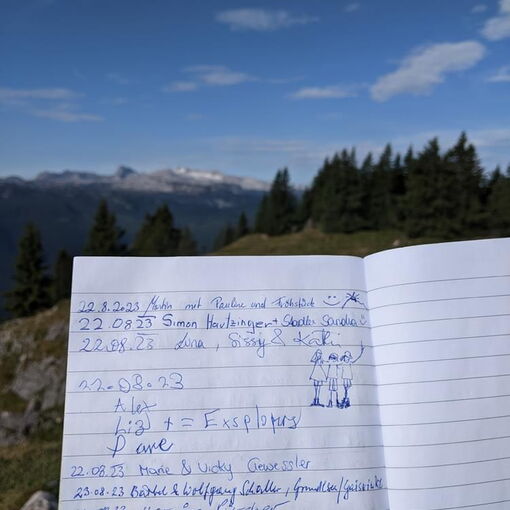 22.8.2023 Martin mit Pauline und Frühstück
22.08.23 Simon Hautzinger + Stadler Sandra
22.08.23 Anna, Sissy & Kathi
22.08.23
Alex
Lizl + = Exsplorers
Dave
22.08.23 Marie & Vicky Gewessler
23.08.23 Bärbel & Wolfgang Schaller,